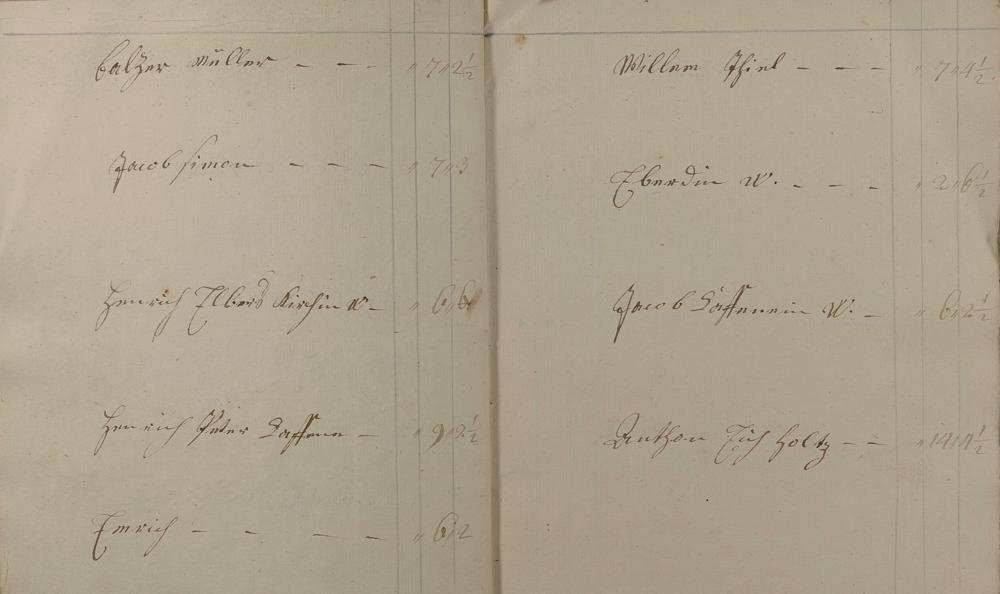 Balzer Müller - - - " 7 " 2 1/2
Jacob Simon - - - - " 7 " 3
Henrich Elberd Kirchin W - " 6 "
Henrich Peter Laffenn - " 9 " 2 1/2
Emrich - - - - " 6 " 2
Willem Thiel - - - " 7 " 4 1/2
Eberdin W. - - - " 2 " 6 1/2
Jacob Laffenein W. - " 6 " 2 1/2
Anthon Eich Holtz - - " 14 " 4 1/2